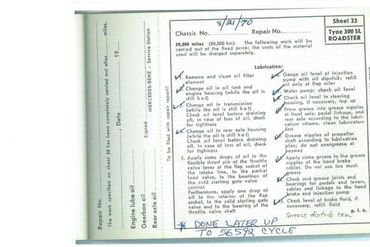 8/21/70
Sheet 22
Chassis No.
Repair No.
Type 300 SL
ROADSTER
50,000 miles (80,000 km). The following work will be
carried out at the fixed price; the costs of the material
used will be charged separately.
Lubrication:
Remove and clean oil filter
element
Change oil in oil tank and
engine housing (while the oil is
still hot)
Change oil in transmission
(while the oil is still hot)
Check oil level before draining
off; in case of loss of oil, check
for tightness
Change oil in rear axle housing
(while the oil is still hot)
Check oil level before draining
off, in case of loss of oil, check
for tightness
5. Apply some drops of oil to the
flexible front pin of the throttle
valve lever at the flap socket
of the intake line, to the partial
load valve, to the bearings of the
cold starting gate valve
control
Furthermore, apply one drop of
oil to the interior of the flap
socket, to the cold starting gate
valve and to the bearing of the
throttle valve shaft
Gauge oil level at injection
pump with oil dipstick; refill
oil only at flap oiler
Water pump: check oil level
Check oil level in steering
housing, if necessary, top up
Press grease into grease nipples
at front axle, pedal linkage, and
rear axle according to the lubrication
scheme, clean lubricators
first
Grease nipples of propeller
shaft according to lubrication
plan; do not overgrease if
anyway
Apply some grease to the grease
nipples at the hand brake
cables. Do not use too much
grease
Check and grease joints and
bearings for pedals and levers,
cables and linkage to the hand
brake and injection pump
Check level of brake fluid, if
necessary, refill fluid
Grease distrib cam
p. t. o.
* DONE LATER UP
TO 96592 CYCLE
Repair No.
miles.
Date
19
Engine lube oil
Gearbox oil
Rear axle oil
Signed
MERCEDES-BENZ - Service Station